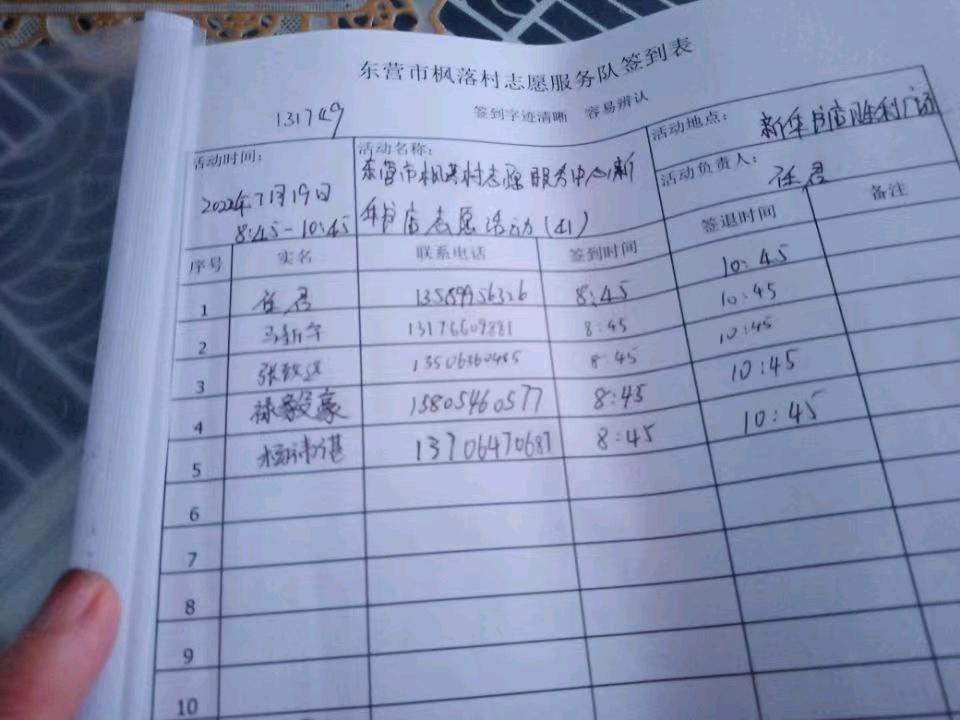 东营市枫落村志愿服务队签到表
131749
签到字迹清晰 容易辨认
活动时间：
2022年7月19日
8:45-10:45
活动名称：
东营市枫落村志愿服务中心新
华书店志愿活动(41)
活动地点： 新华书店胜利广场
活动负责人： 任君
序号 实名 联系电话 签到时间 签退时间 备注
1 任君 13589956326 8:45 10:45
2 马新宇 13176609881 8:45 10:45
3 张致远 13506360485 8:45 10:45
4 13805460577 8:45 10:45
5 13706470687 8:45 10:45
6
7
8
9
10